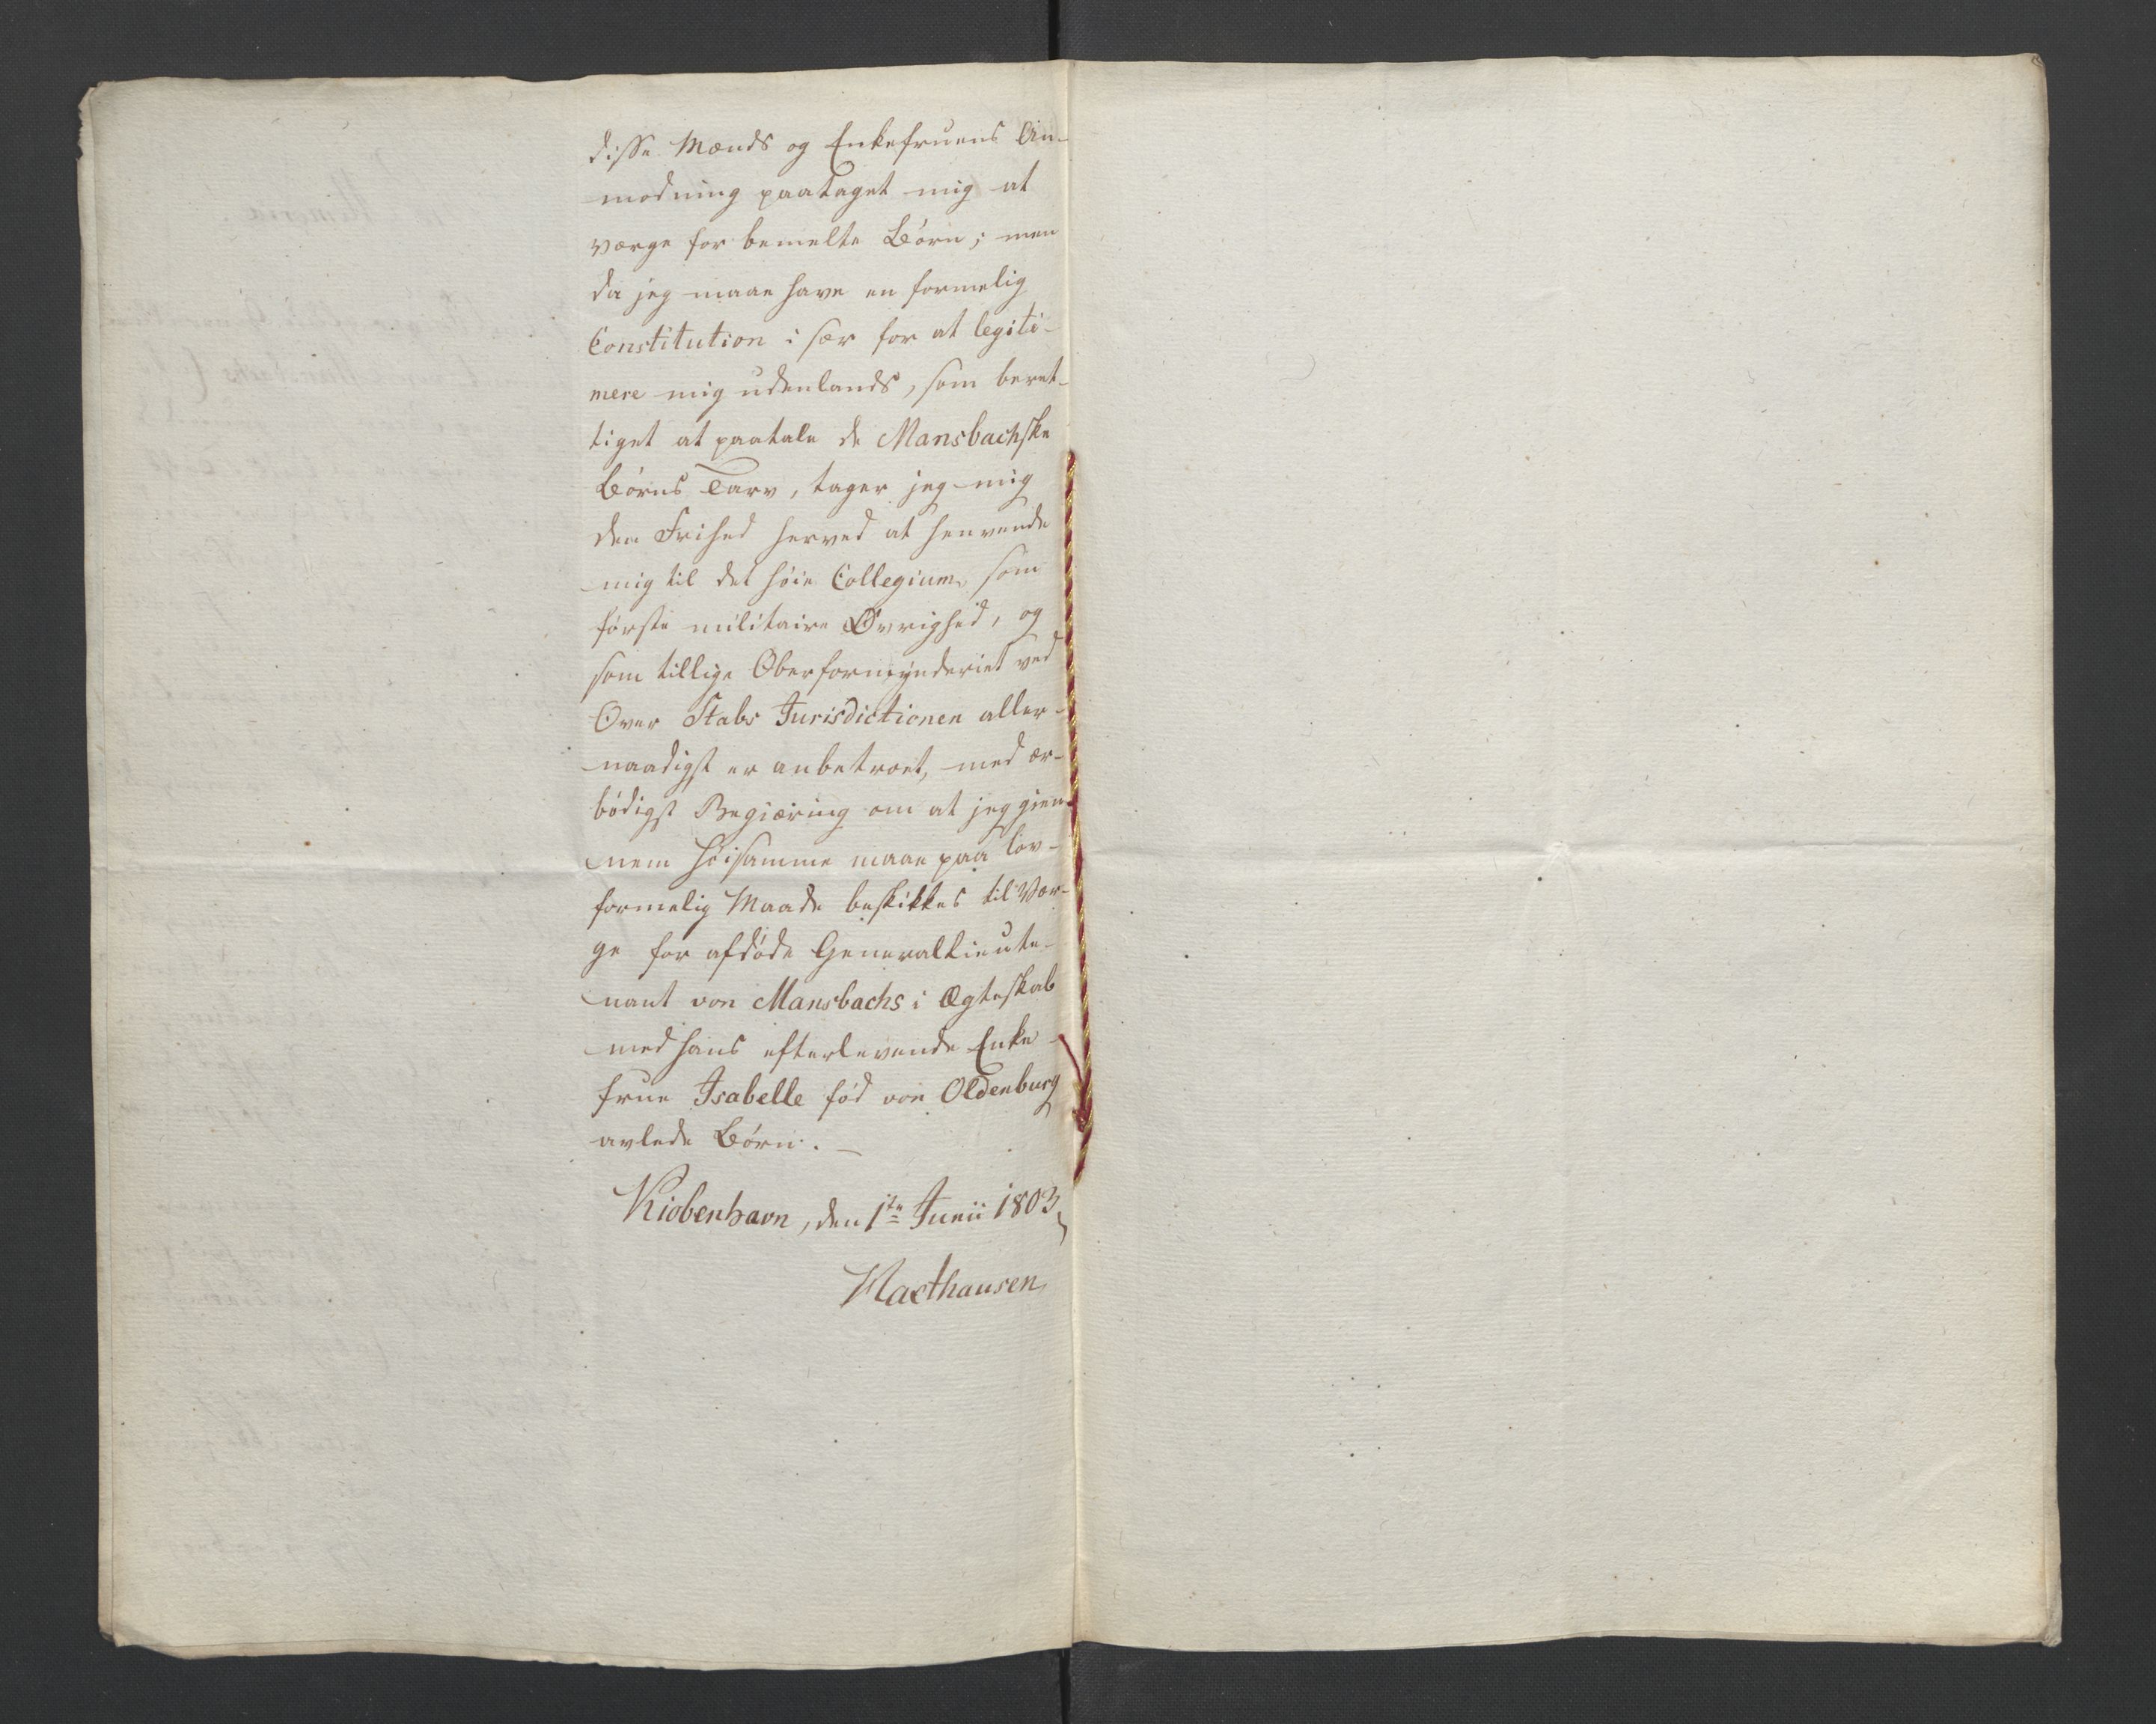 disse Mænds og Enkefruens An-
modning paataget mig at
værge for bemelte Børn; men
da jeg maae have en formelig
Constitution i sær for at legiti-
mere mig udenlands, som beret-
tiget at paatale de Mansbachske
Børns Tarv, tager jeg mig
den Frihed herved at henvende
mig til det høie Collegium, som
første militaire Øvrighed, og
som tillige Oberformynderiet ved
Over Stabs Jurisdictionen aller-
naadigst er anbetroet, med ær-
bødigst Begiæring om at jeg gien-
nem høisamme maae paa lov-
formelig Maade beskikkes til Vær-
ge for afdøde Generallieute-
nant von Mansbachs i Ægteskab
med hans efterlevende Enke-
frue Isabelle fød von Oldenburg
avlede Børn. —
Kiøbenhavn, den 1ste Junii 1803
Haxthausen